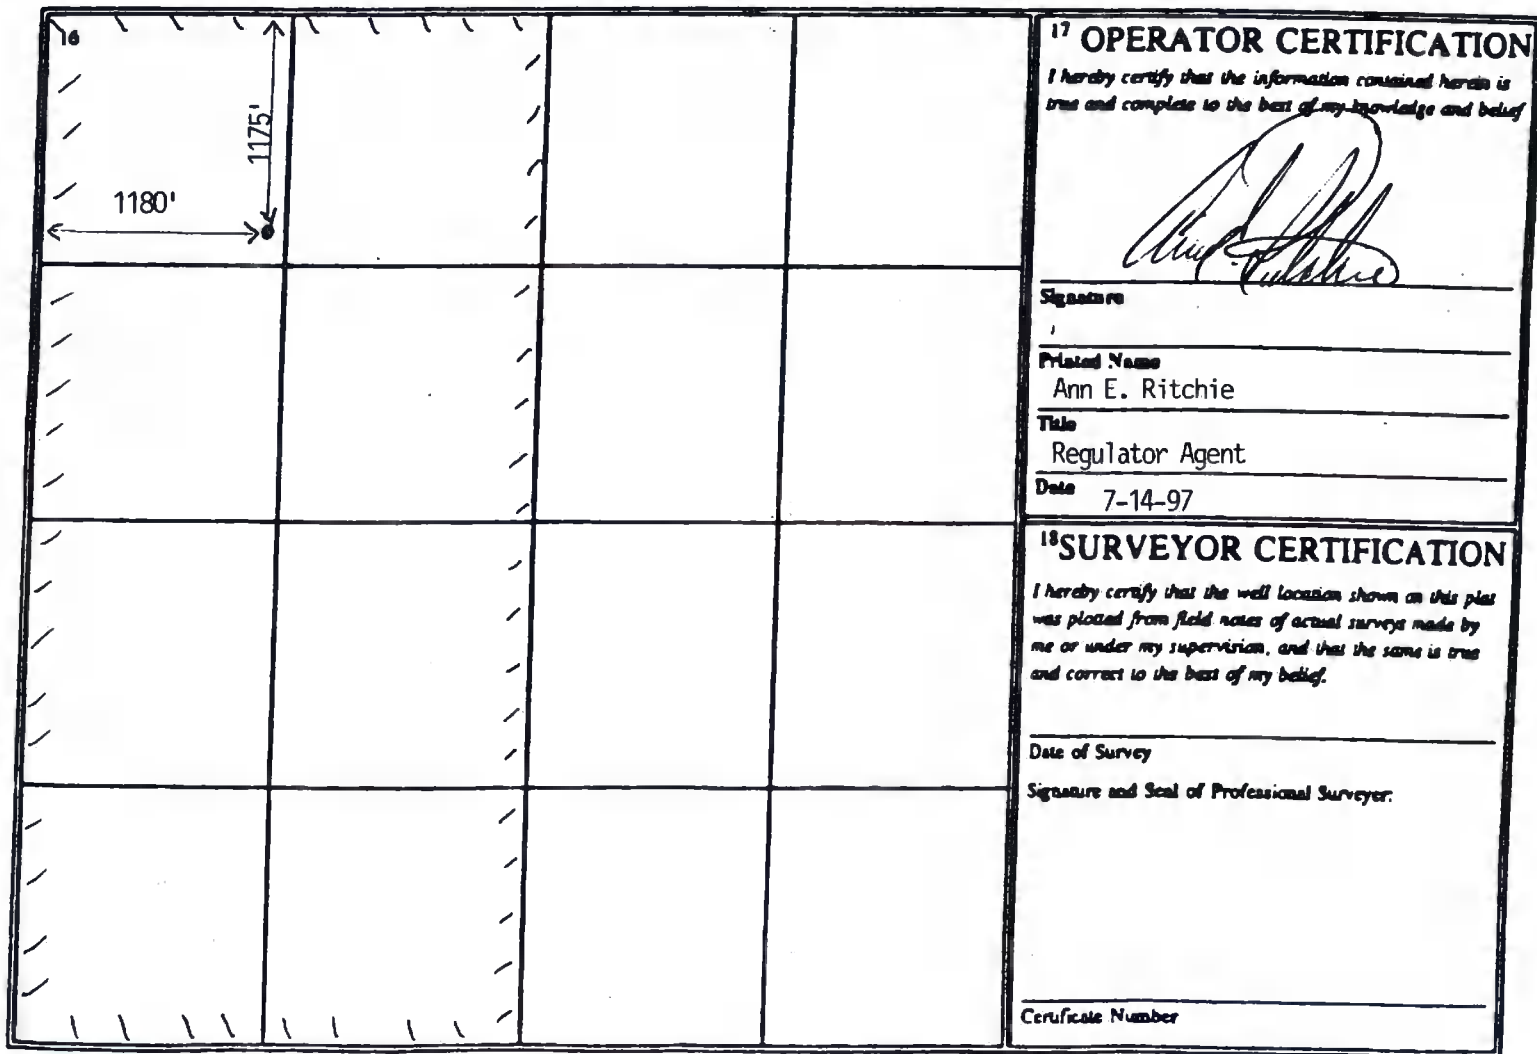 16
1175'
1180'
17 OPERATOR CERTIFICATION
I hereby certify that the information contained herein is
true and complete to the best of my knowledge and belief
Signature
Printed Name
Ann E. Ritchie
Title
Regulator Agent
Date 7-14-97
18 SURVEYOR CERTIFICATION
I hereby certify that the well location shown on this plat
was plotted from field notes of actual surveys made by
me or under my supervision, and that the same is true
and correct to the best of my belief.
Date of Survey
Signature and Seal of Professional Surveyer:
Certificate Number